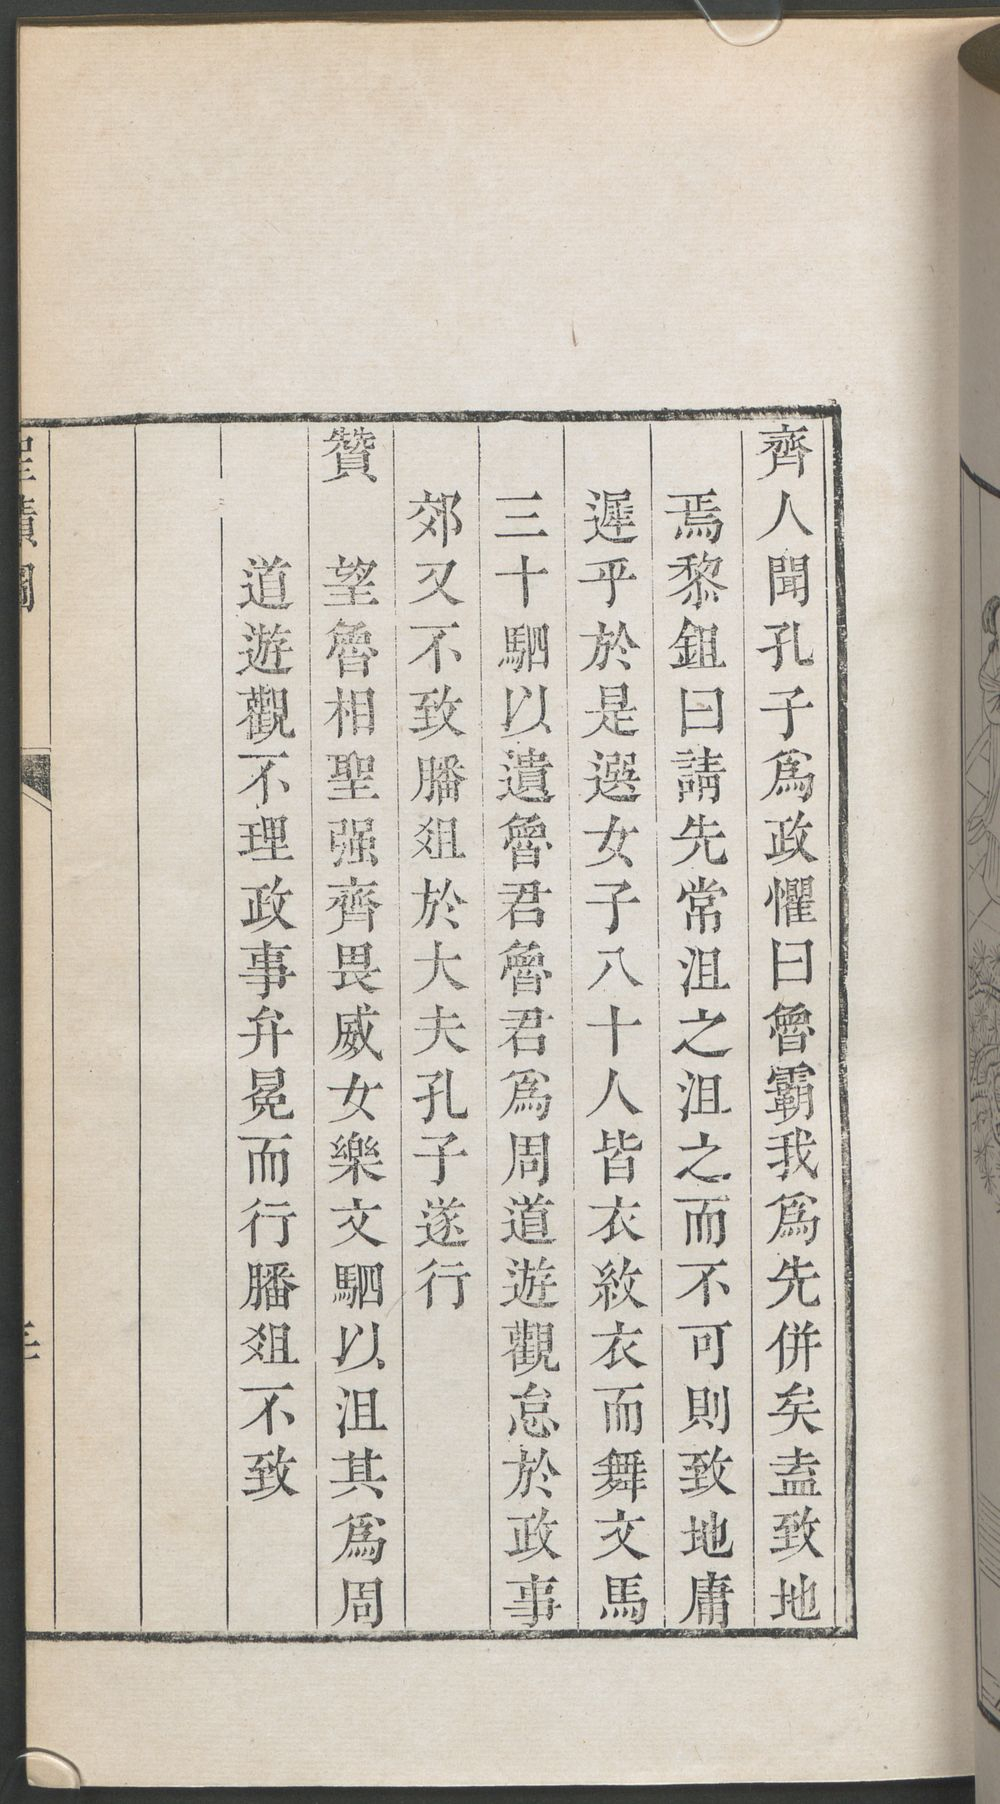 齊人聞孔子爲政懼曰魯霸我爲先併矣盍致地
焉黎鉏曰請先常沮之沮之而不可則致地庸
遲乎於是選女子八十人皆衣紋衣而舞文馬
三十駟以遺魯君魯君爲周道遊觀怠於政事
郊又不致膰俎於大夫孔子遂行
贊 望魯相聖强齊畏威女樂文駟以沮其爲周
道遊觀不理政事弁冕而行膰俎不致
聖蹟圖